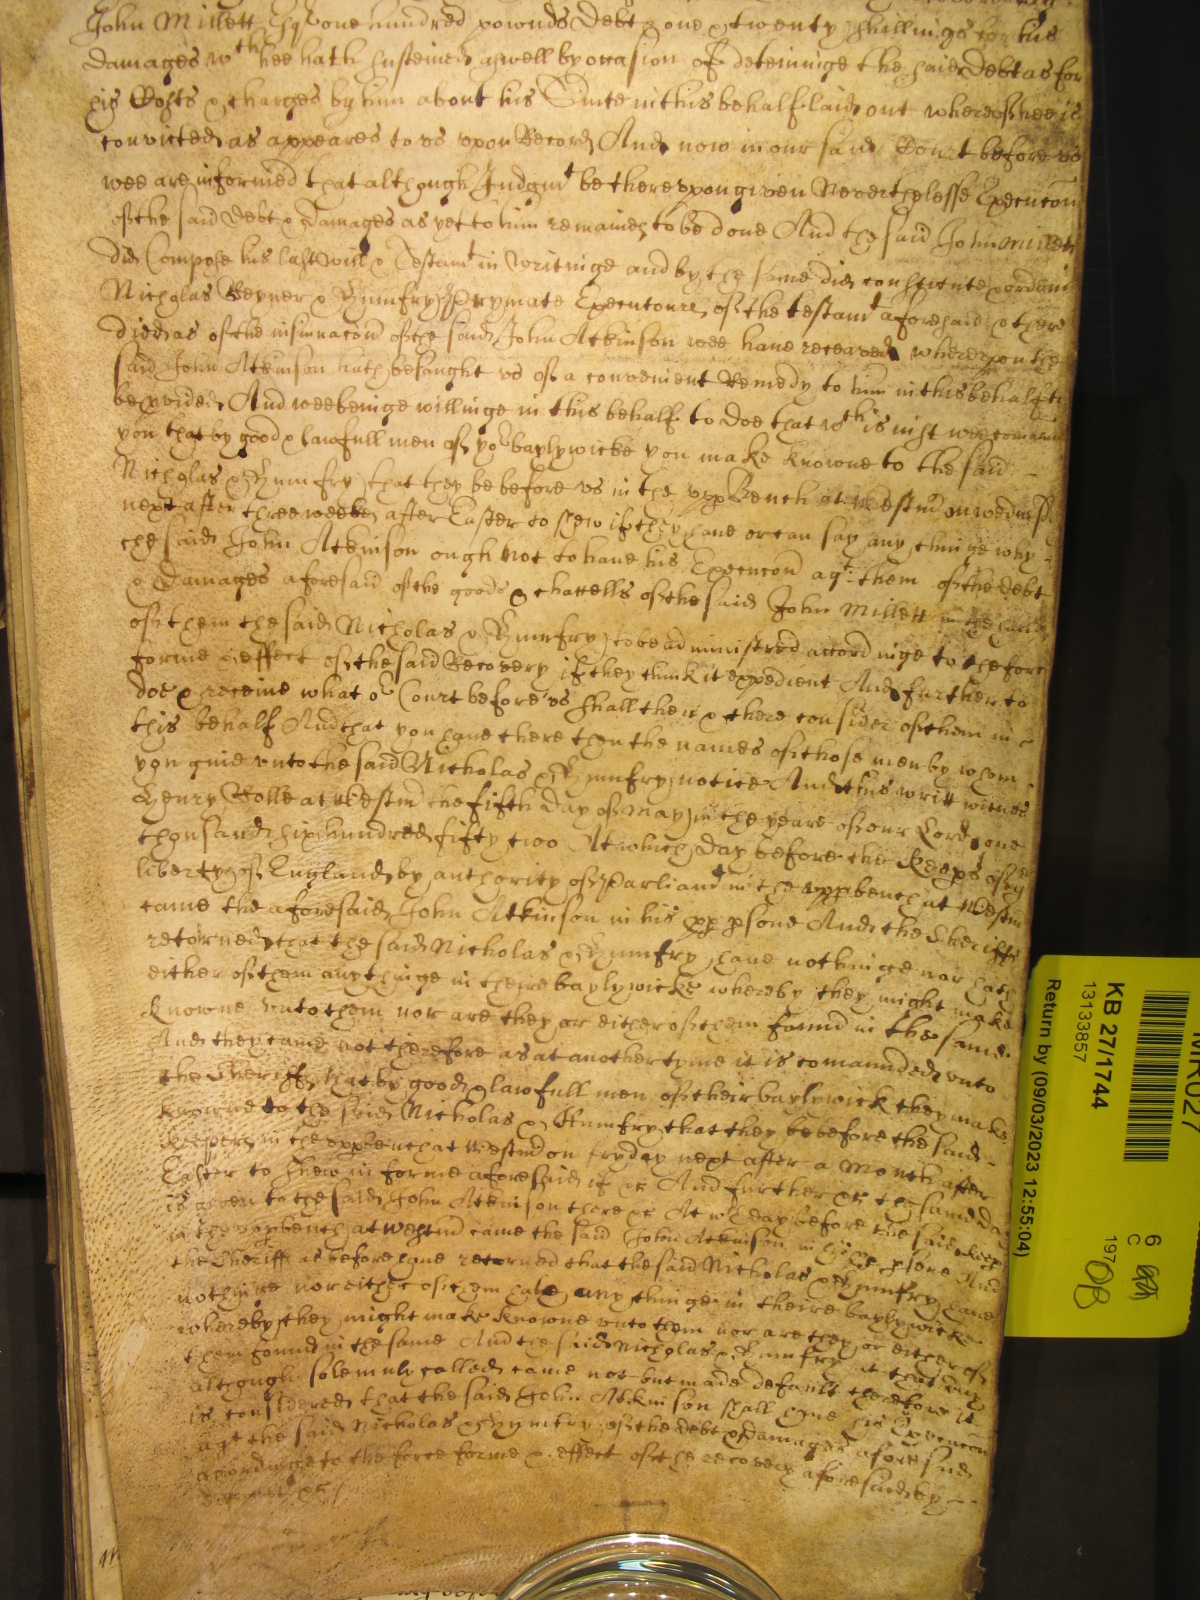 John Millett Esqr one hundred pownds Debt & one & twenty shillings for his
damages wth hee hath susteined aswell by occasion of deteininge the said Debt as for
his Costs & charges by him about his Suite in this behalf laid out whereof hee is
convicted as appeares to us upon Record And now in our said Court before us
wee are informed that although Judgmt be thereuppon given Neverthelesse Execucon
of the said Debt & Damages as yet to him remaines to be done And the said John Millett
did Compose his last will & Testamt in writinge and by the same did constitute & ordeine
Nicholas & Humfry Executoures of the testamt aforesaid & there
died as of the insinuacon of the said John Atkinson wee have receaved whereupon the
said John Atkinson hath besought us of a convenient Remedy to him in this behalf to
be pvided And wee beinge willinge in this behalf to doe that wth is just wee comaund
you that by good & lawfull men of yor baylywicke you make knowne to the said
Nicholas & Humfry that they be before us in the upp Bench at Westmr on wednesd
next after three weekes after Easter to shew if they have or can say any thinge why
the said John Atkinson ought not to have his Execucon agt them of the debt
& Damages aforesaid of the goods & chattells of the said John Millett in the hands
of them the said Nicholas & Humfry to be administred accordinge to the force
forme & effect of the said Recovery if they think it expedient And further to
doe & receive what or Court before us shall then & there consider of them in
this behalf And that you have there then the names of those men by whom
you give unto the said Nicholas & Humfry notice And this writt witnes
Henry Rolle at Westmr the fifth day of May in the yeare of our Lord one
thousand six hundred fifty two At which day before the Keeps of ye
liberty of England by authority of Parliamt in the upp bench at Westmr
came the aforesaid John Atkinson in his pp psone And the Sheriffe
retorned that the said Nicholas & Humfry have nothinge nor hath
either of them any thinge in theire baylywicke whereby they might make
knowne unto them nor are they or either of them found in the same
And they came not therefore as at another tyme it is comaunded unto
the Sheriffe that by good & lawfull men of their baylywick they make
knowne to the said Nicholas & Humfry that they be before the said
keepers in the upp bench at Westmr on fryday next after a Month after
Easter to shew in forme aforesaid if &c And further &c the same day
is given to the said John Atkinson there &c At wch day before the said keeps
in the upp bench at Westmr came the said John Atkinson in his pp psone And
the Sheriffe as before have retorned that the said Nicholas & Humfry have
nothinge nor either of them hath any thinge in theire baylywicke
whereby they might make knowne unto them nor are they or either of
them found in the same And the said Nicholas & Humfry at that day
although solemnly called came not but made default therefore it
is considered that the said John Atkinson shall have his Execucon
agt the said Nicholas & Humfry of the debt & damages aforesaid
accordinge to the force forme & effect of the recovery aforesaid by
&c
MR027
KB 27/1744
13133857
Return by (09/03/2023 12:55:04)
6
C
197